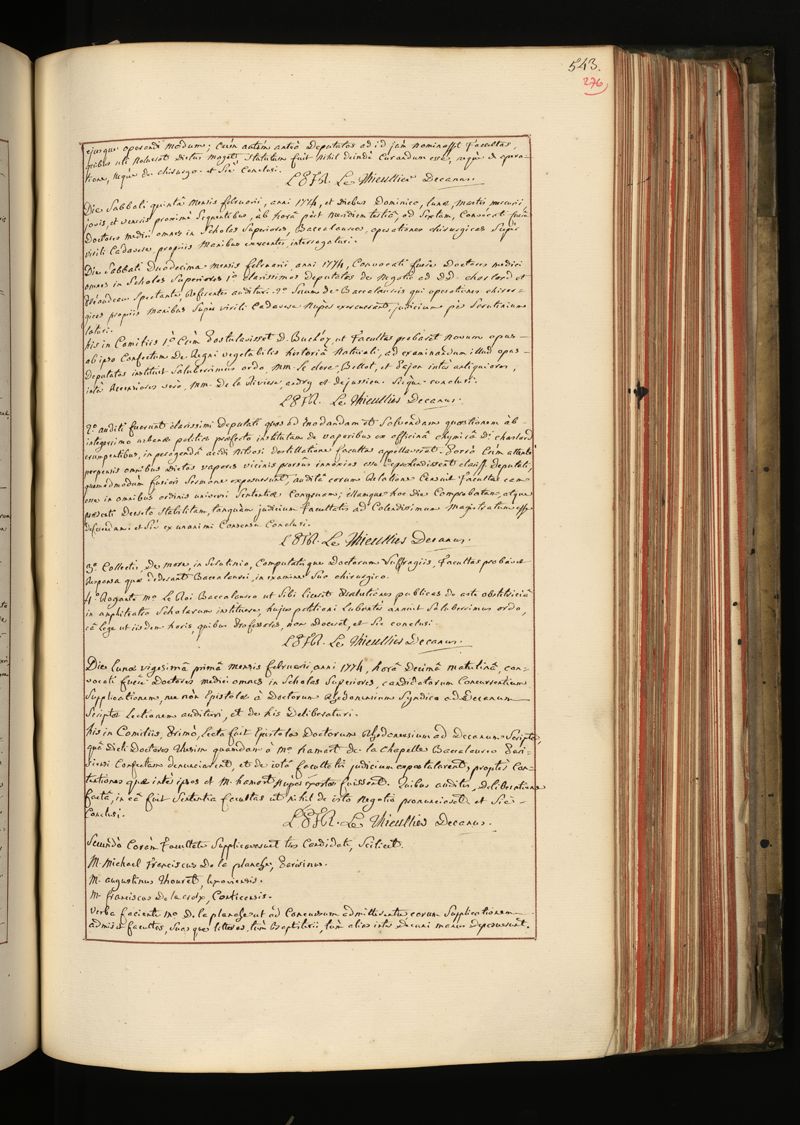 543.
276
ejusque operandi modum; Cum autem antea Deputatos ad id jam nominasset Facultas,
quibus uti Noluerat Dictus Maget, Statutum fuit Nihil deinde Curandum esse, neque de opera-
tione, neque de chirurgo. et Sic Conclusi.
L. P. F. R. Le Thieullier Decanus.
Die Sabbati quintâ mensis februarii, anni 1774, et diebus Dominicâ, lunæ, martis mercurii
jovis, et veneris proximè Sequentibus, ab horâ post meridiem tertiâ, ad Sextam, Convocati fuere
Doctores Medici omnes in Scholas Superiores, Baccalaureos, operationes chirurgicas Super
virili Cadavere propriis Manibus exercentes, interrogaturi.
Die Sabbati Duodecima mensis februarii anni 1774, Convocati fuere Doctores medici
omnes in Scholas Superiores 1.º clarissimos deputatos de Negotio ad DD. charlard et
Spectante, Referentes audituri. 2.º Suum de Baccalaureis qui operationes chirur-
gicas propriis Manibus Super virili Cadavere Nuper exercuerunt, judicium per Scrutinium
laturi.
his in Comitiis 1.º Cum Postulavisset D. Buchoz, ut Facultas probaret Novum opus
ab ipso Confectum de Regni vegetabilis historiâ Naturali, ad examinandum illud opus
deputatos instituit Saluberrimus ordo, MM. Le clerc, Bellot, et inter antiquiores,
inter Recentiores verò, MM. de la Riviere, andry et Dejussieu. Sicque conclusi.
L. P. F. R. Le Thieullier Decanus.
2.º auditi fuerunt clarissimi Deputati quos ad Enodandam et Solvendam quæstionem ab
integerrimo urbanæ politiæ præfecto institutam de vaporibus ex officinâ chymicâ D.i charlard
erumpentibus, in peragendâ acidi Nitrosi destillatione facultas appellaverat. Porrò Cum attentè
perpensis omnibus dictos vapores vicinis prorsus innoxios esse deputati,
quemadmodum fusiori Sermone exposuerunt, auditâ eorum Relatione Censuit Facultas eam
esse in omnibus ordinis universi Sententiæ Congruam; illamque hoc die Comprobatam, atque
præsenti Decreto Stabilitam, tanquam judicium Facultatis ad Colendissimum Magistratum esse
deferendam. et Sic ex unanimi Consensu Conclusi.
L. P. F. R. Le Thieullier Decanus.
3.º Collectis, de more, in Scrutinio, Computatisque Doctorum Suffragiis, Facultas probavit
Responsa quæ dederant Baccalaurei, in examine Suo chirurgico.
4.º Rogante M.º Le Roi Baccalaureo ut Sibi liceret Prælectiones publicas de arte obstetriciâ
in amphiteatro Scholarum instituere, hujus petitioni Lubenter annuit Saluberrimus ordo,
eâ lege ut iisdem horis, quibus Professores, non doceret, et Sic conclusi.
L. P. F. R. Le Thieullier Decanus.
Die lunæ vigesimâ primâ mensis februarii anni 1774, horâ decimâ matutinâ, con-
vocati fuere Doctores medici omnes in Scholas Superiores, candidatorum Concurrentium
Supplicationem, nec non Epistolæ à Doctorum Rhedonensium Syndico ad Decanum
Scriptæ Lectionem audituri, et de his Deliberaturi.
his in Comitiis, Primò, lecta fuit Epistola Doctorum Rhedonensium ad Decanum Scripta,
quâ dicti Doctores Thesim quamdam à M.º hamart de la Chapelle Baccalaureo Pari-
siensi Confectam denunciarent, et de istâ facultatis judicium expostularent, propter Con-
tentiones quæ inter ipsos et M. hamart Nuper exortæ fuissent. Quibus auditis, deliberatione
factâ, in eâ fuit Sententiâ facultas ut nihil de isto Negotio pronunciaret et Sic
Conclusi.
L. P. F. R. Le Thieullier Decanus.
Secundò Coram Facultate Supplicaverunt tres Candidati, Scilicet.
M. Michael franciscus De la planche, Parisinus.
M. augustinus Thouret,
M. franciscus Delacroix,
verba faciente M.º D. la planche ut ad Concursum admitterentur eorum Supplicationem
admisit facultas, Suas que litteras, tum Baptisterii, tum alias inter Decani manus deposuerunt.